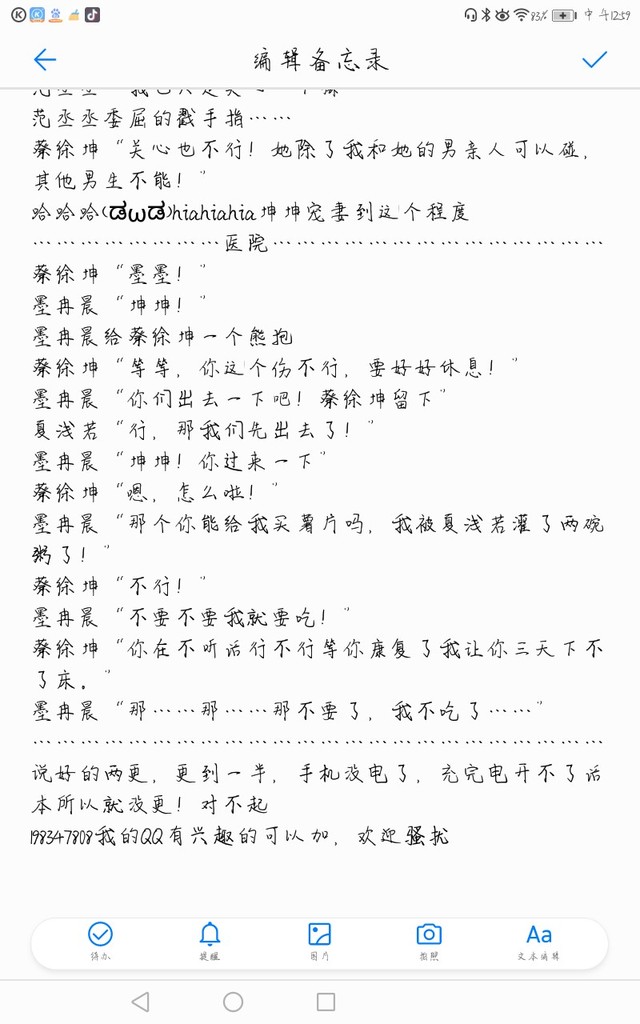 83% 中午12:59
编辑备忘录
范丞丞委屈的戳手指……
蔡徐坤“关心也不行！她除了我和她的男亲人可以碰，
其他男生不能！”
哈哈哈(ಡωಡ)hiahiahia坤坤宠妻到这个程度
……………………医院……………………………………
蔡徐坤“墨墨！”
墨冉晨“坤坤！”
墨冉晨给蔡徐坤一个熊抱
蔡徐坤“等等，你这个伤不行，要好好休息！”
墨冉晨“你们出去一下吧！蔡徐坤留下”
夏浅若“行，那我们先出去了！”
墨冉晨“坤坤！你过来一下”
蔡徐坤“嗯，怎么啦！”
墨冉晨“那个你能给我买薯片吗，我被夏浅若灌了两碗
粥了！”
蔡徐坤“不行！”
墨冉晨“不要不要我就要吃！”
蔡徐坤“你在不听话行不行等你康复了我让你三天下不
了床。”
墨冉晨“那……那……那不要了，我不吃了……”
………………………………………………………………
说好的两更，更到一半，手机没电了，充完电开不了话
本所以就没更！对不起
198347808我的QQ有兴趣的可以加，欢迎骚扰
待办
提醒
图片
拍照
Aa
文本编辑